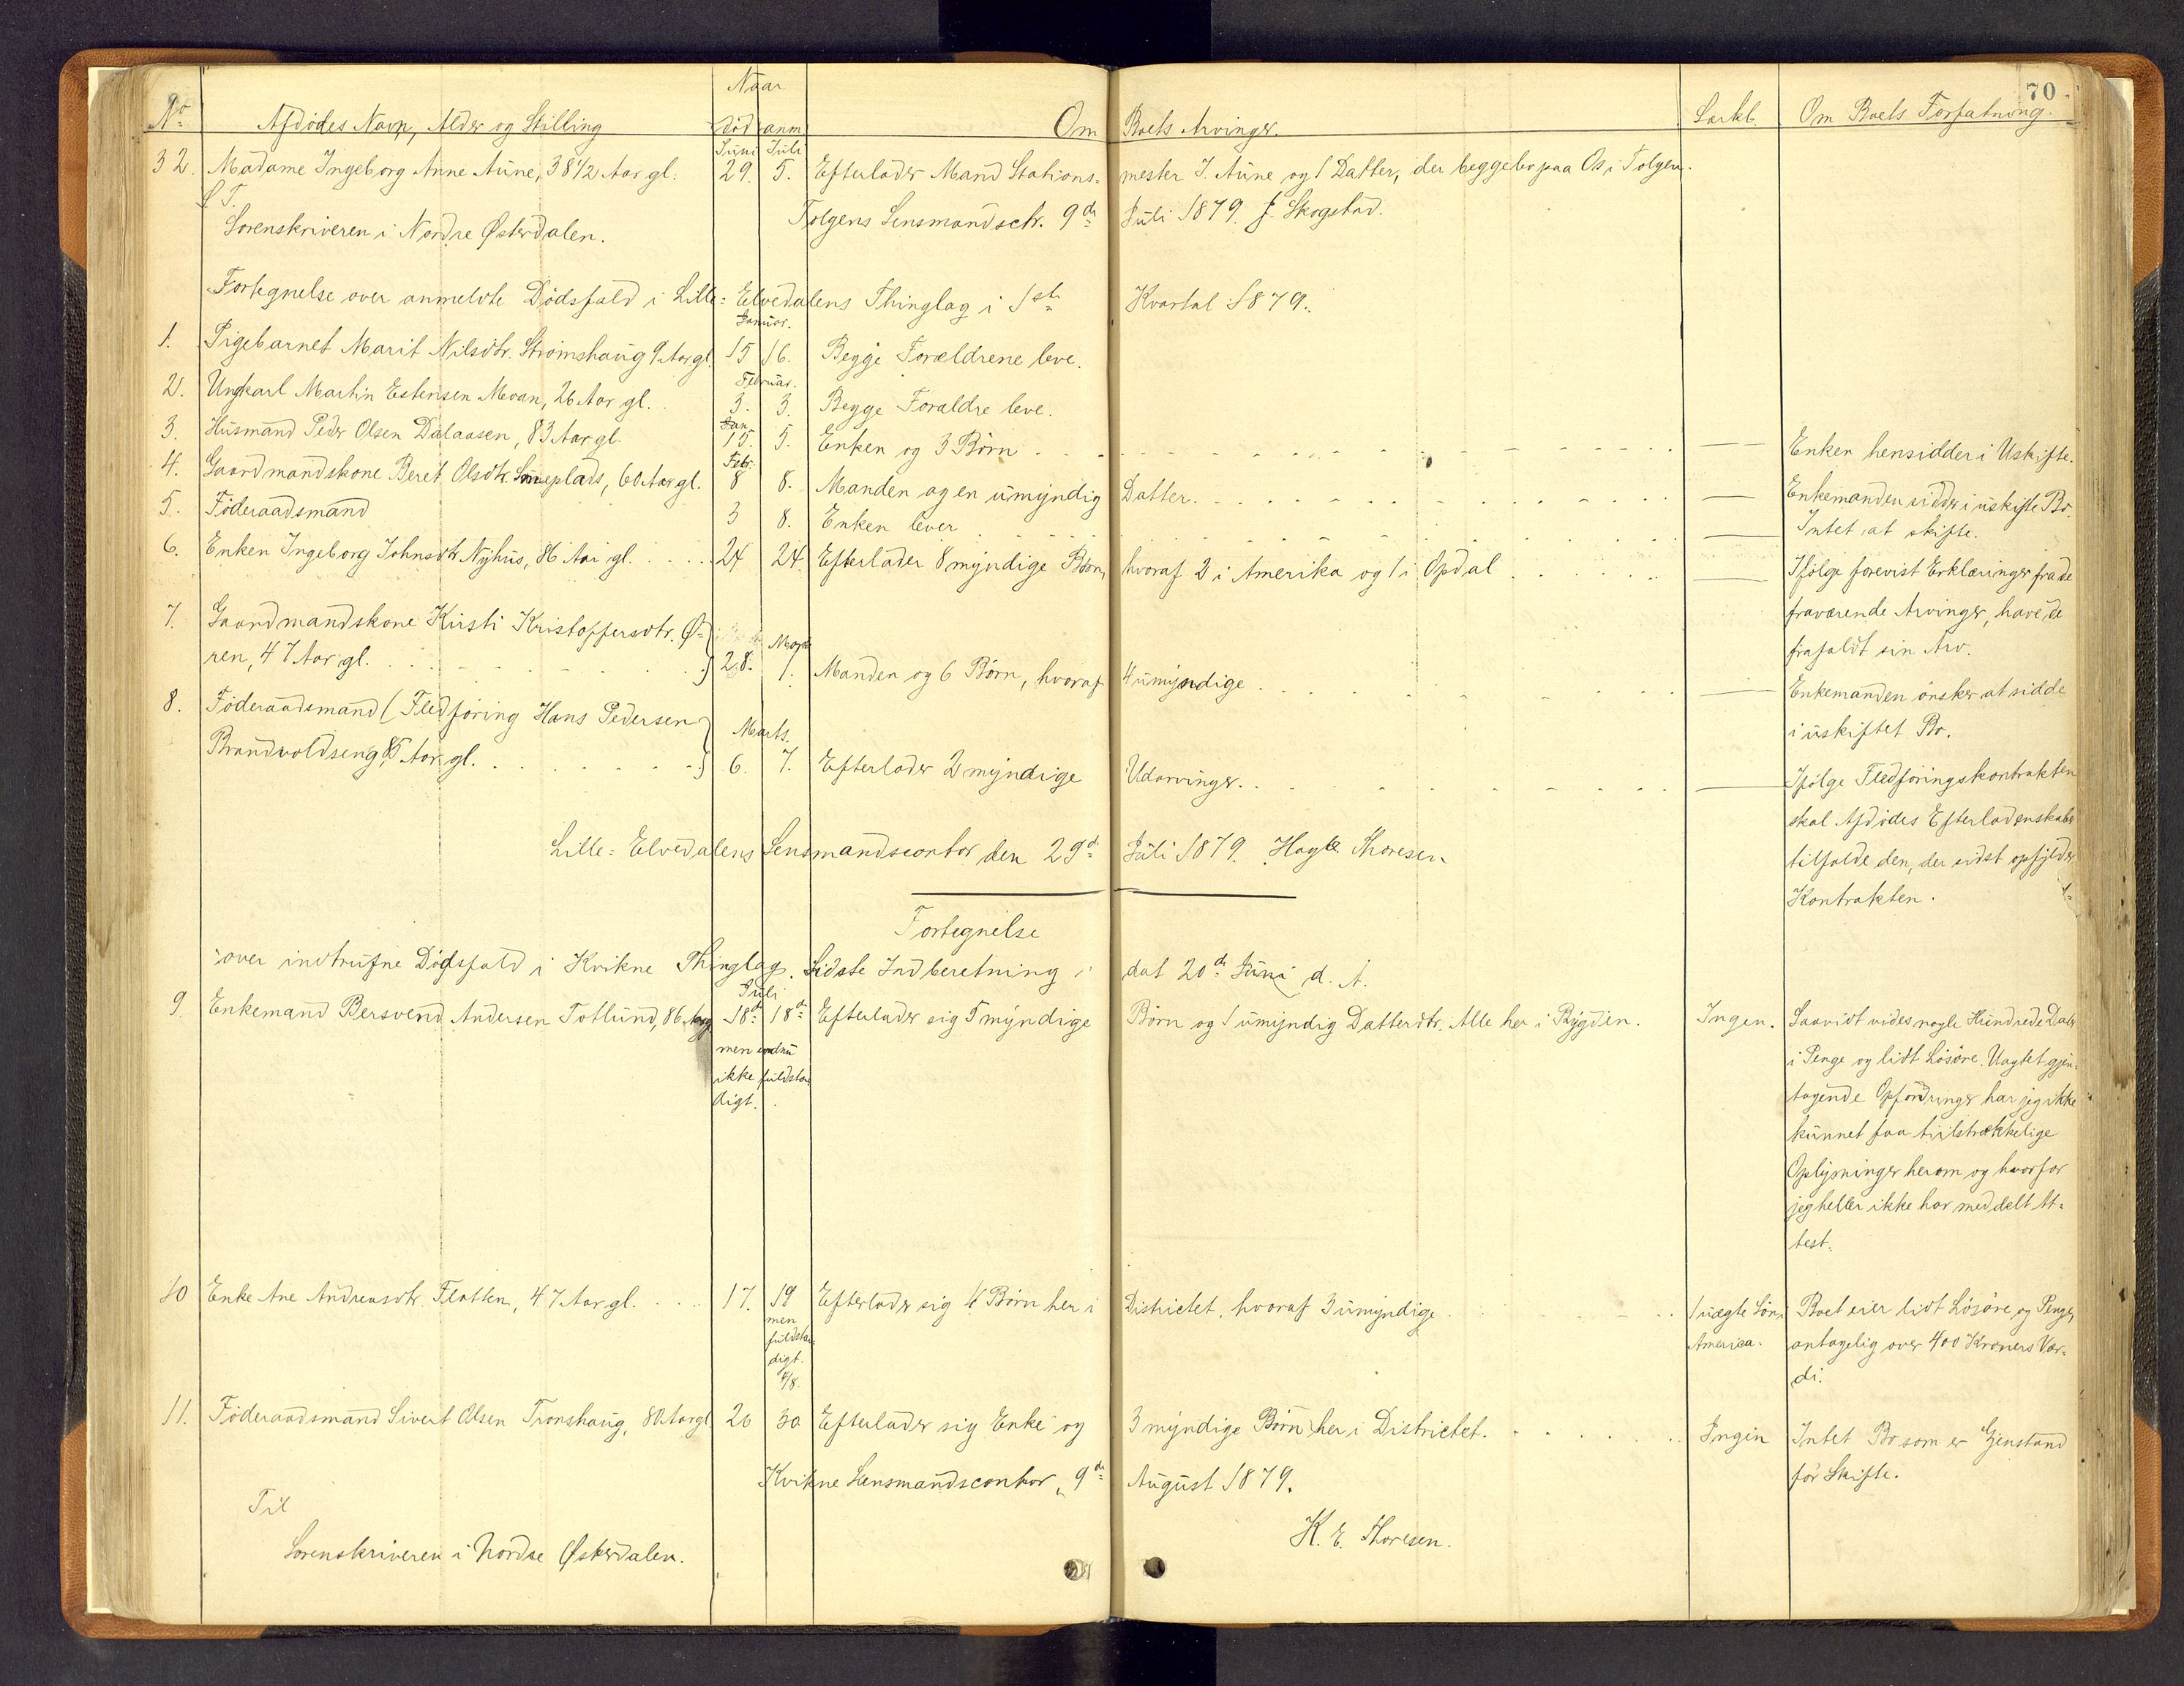 70
No Afdødes Navn, Alder og Stilling Naar død anm Om Boets Arvinger. Særkb. Om Boets Forfatning.
Juni Juli
32. Madame Ingeborg Anne Aune, 38 1/2 Aar gl. 29. 5. Efterlader Mand Stations= mester J. Aune og 1 Datter, der begge bo paa Os i Tolgen.
S. T.
Sorenskriveren i Nordre Østerdalen. Tolgens Lensmandsctr. 9de Juli 1879. J. Skogstad.
Fortegnelse over anmeldte Dødsfald i Lille= Elvedalens Thinglag i 1ste Kvartal 1879.
Januar.
1. Pigebarnet Marit Nilsdtr. Strømshaug 9 Aar gl. 15 16. Begge Forældrene leve.
Februar.
2. Ungkarl Martin Estensen Moan, 26 Aar gl. 3. 3. Begge Forældre leve.
Jan.
3. Husmand Peder Olsen Dalaasen, 83 Aar gl. 15. 5. Enken og 3 Børn Enken hensidder i Uskifte.
Feb.
4. Gaardmandskone Beret Olsdtr. , 60 Aar gl. 8 8. Manden og en umyndig Datter. Enkemanden sidder i uskifte Bo.
5. Føderaadsmand 3 8. Enken lever Intet at skifte.
6. Enken Ingeborg Johnsdtr. Nyhus, 86 Aar gl. 24 24. Efterlader 8 myndige Børn, hvoraf 2 i Amerika og 1 i Opdal Ifølge forevist Erklæringer fra de
fraværende Arvinger, have de
frafaldt sin Arv.
7. Gaardmandskone Kirsti Kristoffersdtr. Ø=
Marts
ren, 47 Aar gl. 28. 1. Manden og 6 Børn, hvoraf 4 umyndige Enkemanden ønsker at sidde
i uskiftet Bo.
8. Føderaadsmand (Fledføring Hans Pedersen
Marts.
Brandvoldseng, 85 Aar gl. 6. 7. Efterlader 2 myndige Udarvinger. Ifølge Fledføringskontrakten
skal Afdødes Efterladenskaber
tilfalde den, der sidst opfylder
Kontrakten.
Lille= Elvedalens Lensmandscontor den 29de Juli 1879. Thoresen
Fortegnelse
over indtrufne Dødsfald i Kvikne Thinglag. Sidste Indberetning dat 20de Juni d. A.
Juli
9. Enkemand Bersvend Andersen Totlund, 86 Aar gl 18de 18de Efterlader sig 5 myndige Børn og 1 umyndig Datterdtr. Alle her i Bygden. Ingen. Saavidt vides nogle Hundrede Daler
men endnu
ikke fuldstæn
digt.
i Penge og lidt Løsøre. Uagtet gjen=
tagende Opfordringer har jeg ikke
kunnet faa tilstrækkelige
Oplysninger herom og hvorfor
jeg heller ikke har meddelt At=
test.
10 Enke Ane Andreasdtr. Flatten, 47 Aar gl. 17. 19 Efterlader sig 4 Børn her i Districtet, hvoraf 3 umyndige 1 uægte Søn i Boet eier lidt Løsøre og Penge,
men
fuldstæn
digt.
/8.
America. antagelig over 400 Kroners Vær=
di.
11. Føderaadsmand Sivert Olsen Tronshaug, 80 Aar gl 20 30 Efterlader sig Enke og 3 myndige Børn her i Districtet. Ingen Intet Bo som er Gjenstand
for Skifte.
Kvikne Lensmandscontor, 9de August 1879.
Til
K. E. Thoresen.
Sorenskriveren i Nordre Østerdalen.